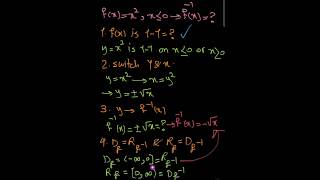 f(x)=x², x≤0 → f⁻¹(x)=?
1. f(x) is 1-1=? ✓
y=x² is 1-1 on x≤0 or x≥0
2. switch y & x.
y=x² → x=y²
→ y=±√x
3. y → f⁻¹(x)
f⁻¹(x)=±√x=? → f⁻¹(x)=-√x
4. D_f=R_f⁻¹ & R_f=D_f⁻¹
D_f=(-∞,0]=R_f⁻¹
R_f=[0,∞)=D_f⁻¹